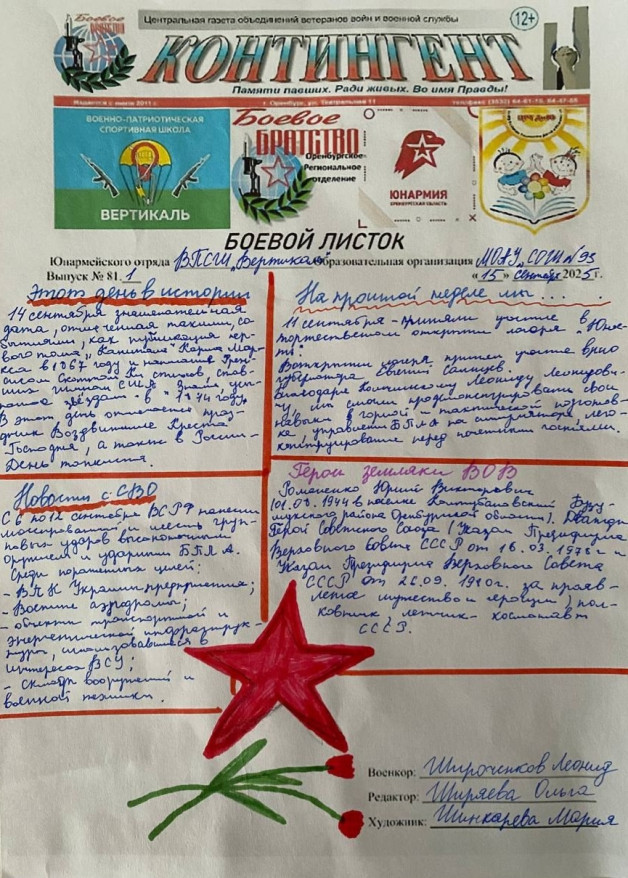 Центральная газета объединений ветеранов войн и военной службы
12+
Боевое
БРАТСТВО
КОНТИНГЕНТ
Памяти павших. Ради живых. Во имя Правды!
Издается с июля 2011 г.
г. Оренбург, ул. Театральная 11
ВОЕННО-ПАТРИОТИЧЕСКАЯ
СПОРТИВНАЯ ШКОЛА
ВЕРТИКАЛЬ
Боевое
БРАТСТВО
Оренбургское
Региональное
отделение
ЮНАРМИЯ
ОРЕНБУРГСКАЯ ОБЛАСТЬ
БОЕВОЙ ЛИСТОК
Юнармейского отряда ВПСШ „Вертикаль" образовательная организация МОАУ „СОШ №93
Выпуск № 81. 1
«15» сентября 2025 г.
Этот день в истории
14 сентября знаменательная
дата, отмеченная такими, со-
бытиями, как публикация пер-
вого тома „Капитала" Карла Мар-
кса в 1867 году и написание Фрэн-
сисом Скоттом Ки стихов, став-
ших гимном США
В этот день отмечается праз-
дник Воздвижение Креста
Господня, а также в России-
День танкиста.
На прошлой неделе мы ....
11 сентября - приняли участие в
торжественном открытии
В открытии принял участие врио
губернатора Евгений Солнцев.
Благодаря Леониду Леонидови-
чу, мы смогли продемонстрировать свои
навыки в и тактической подготов-
ке управлении БПЛА на симуляторах, лего-
конструирование перед почетными гостями.
Новости с СВО
С 6 по 12 сентября ВС РФ нанесли
массированный и шесть груп-
повых ударов высокоточным
оружием и ударными БПЛА.
Среди пораженных целей:
- ВПК Украины предприятия;
- Военные аэродромы;
- объекты транспортной и
энергетической инфраструк-
туры, использовавшиеся в
интересах ВСУ;
- склады вооружений и
военной техники.
Герои земляки ВОВ
Романенко Юрий Викторович
(01.08.1944 в поселке Колтубановский Бузу-
лукского района Оренбургской области). Дважды
Герой Советского Союза (Указом Президиума
Верховного Совета СССР от 16.03.1978 г и
Указом Президиума Верховного Совета
СССР от 26.09.1980г. за прояв-
мужество и героизм), пол-
ковник летчик-космонавт
СССР.
Военкор: Широченков Леонид
Редактор: Ширяева Ольга
Художник: Шинкарева Мария